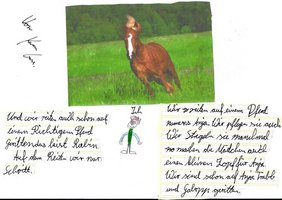 Ich
Und wir reiten auch schon auf
einem Richtigem Pferd
Auf dem Reiten wir nur
Schritt.
Wir reiten auf einem Pferd
namens Anja. Wir pflegen sie auch
Wir Striegeln sie manchmal
so machen die Mädchen auch
einen kleinen Zopf für Anja.
Wir sind schon auf Anja Trabb
und Galopp geritten.